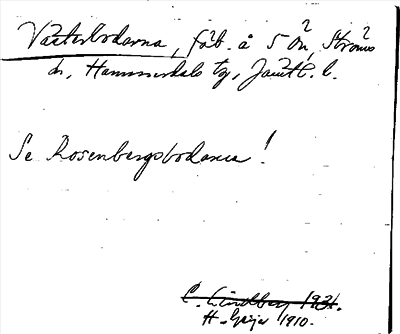 Västerbodarna, fäb. å S Ön, Ströms
sn, Hammerdals tg, Jämtl. l.
Se Rosenbergsbodarna!
C. Lindberg 1921.
H. Geijer 1910.